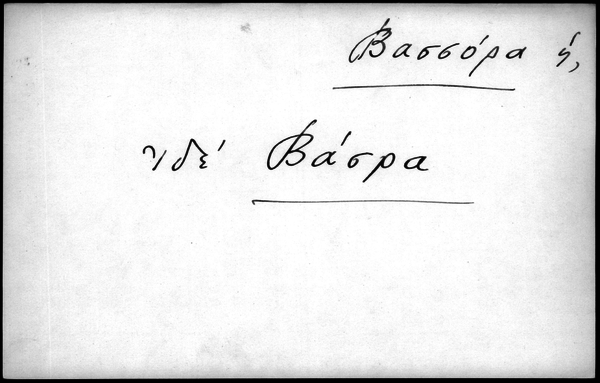 Βασσόρα ἡ,
ἰδέ Βάσρα